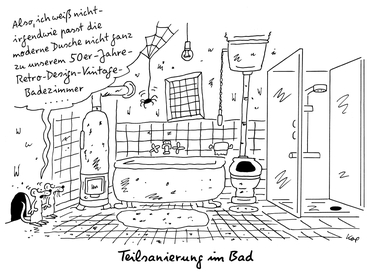 Also, ich weiß nicht-
irgendwie passt die
moderne Dusche nicht ganz
zu unserem 50er-Jahre-
Retro-Design-Vintage-
Badezimmer ....
Teilsanierung im Bad